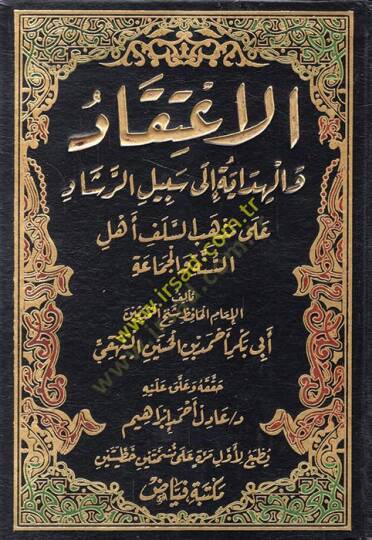 الاعْتِقَادُ
وَالْهِدَايَةُ إِلَى سَبِيلِ الرَّشَادِ
عَلَى مَذْهَبِ السَّلَفِ أَهْلِ
السُّنَّةِ وَالْجَمَاعَةِ
تأليف
الإمام الحافظ شيخ
أبي بكر أحمد بن الحسين البيهقي
حققه وعلق عليه
د/عادل أحمد إبراهيم
يطبع لأول مرة على نسختين خطيتين
مكتبة فياض
www.irsad.com.tr